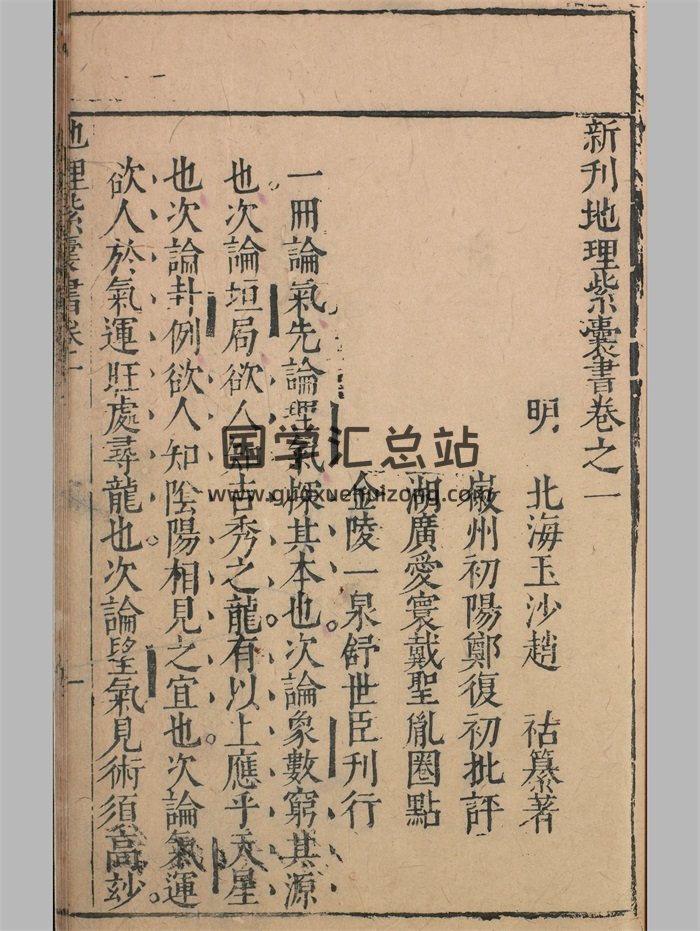 新刊地理紫囊書卷之一
明 北海玉沙趙 祜纂著
徽州初陽鄭復初批評
湖廣愛寰戴聖胤圈點
金陵一泉舒世臣刊行
一冊論氣先論理氣探其本也次論象數窮其源
也次論垣局欲人知吉秀之龍有以上應乎天星
也次論卦例欲人知陰陽相見之宜也次論氣運
欲人於氣運旺處尋龍也次論望氣見術須高玅
地理紫囊書卷一
一
国学汇总站
www.guoxuehuizong.com